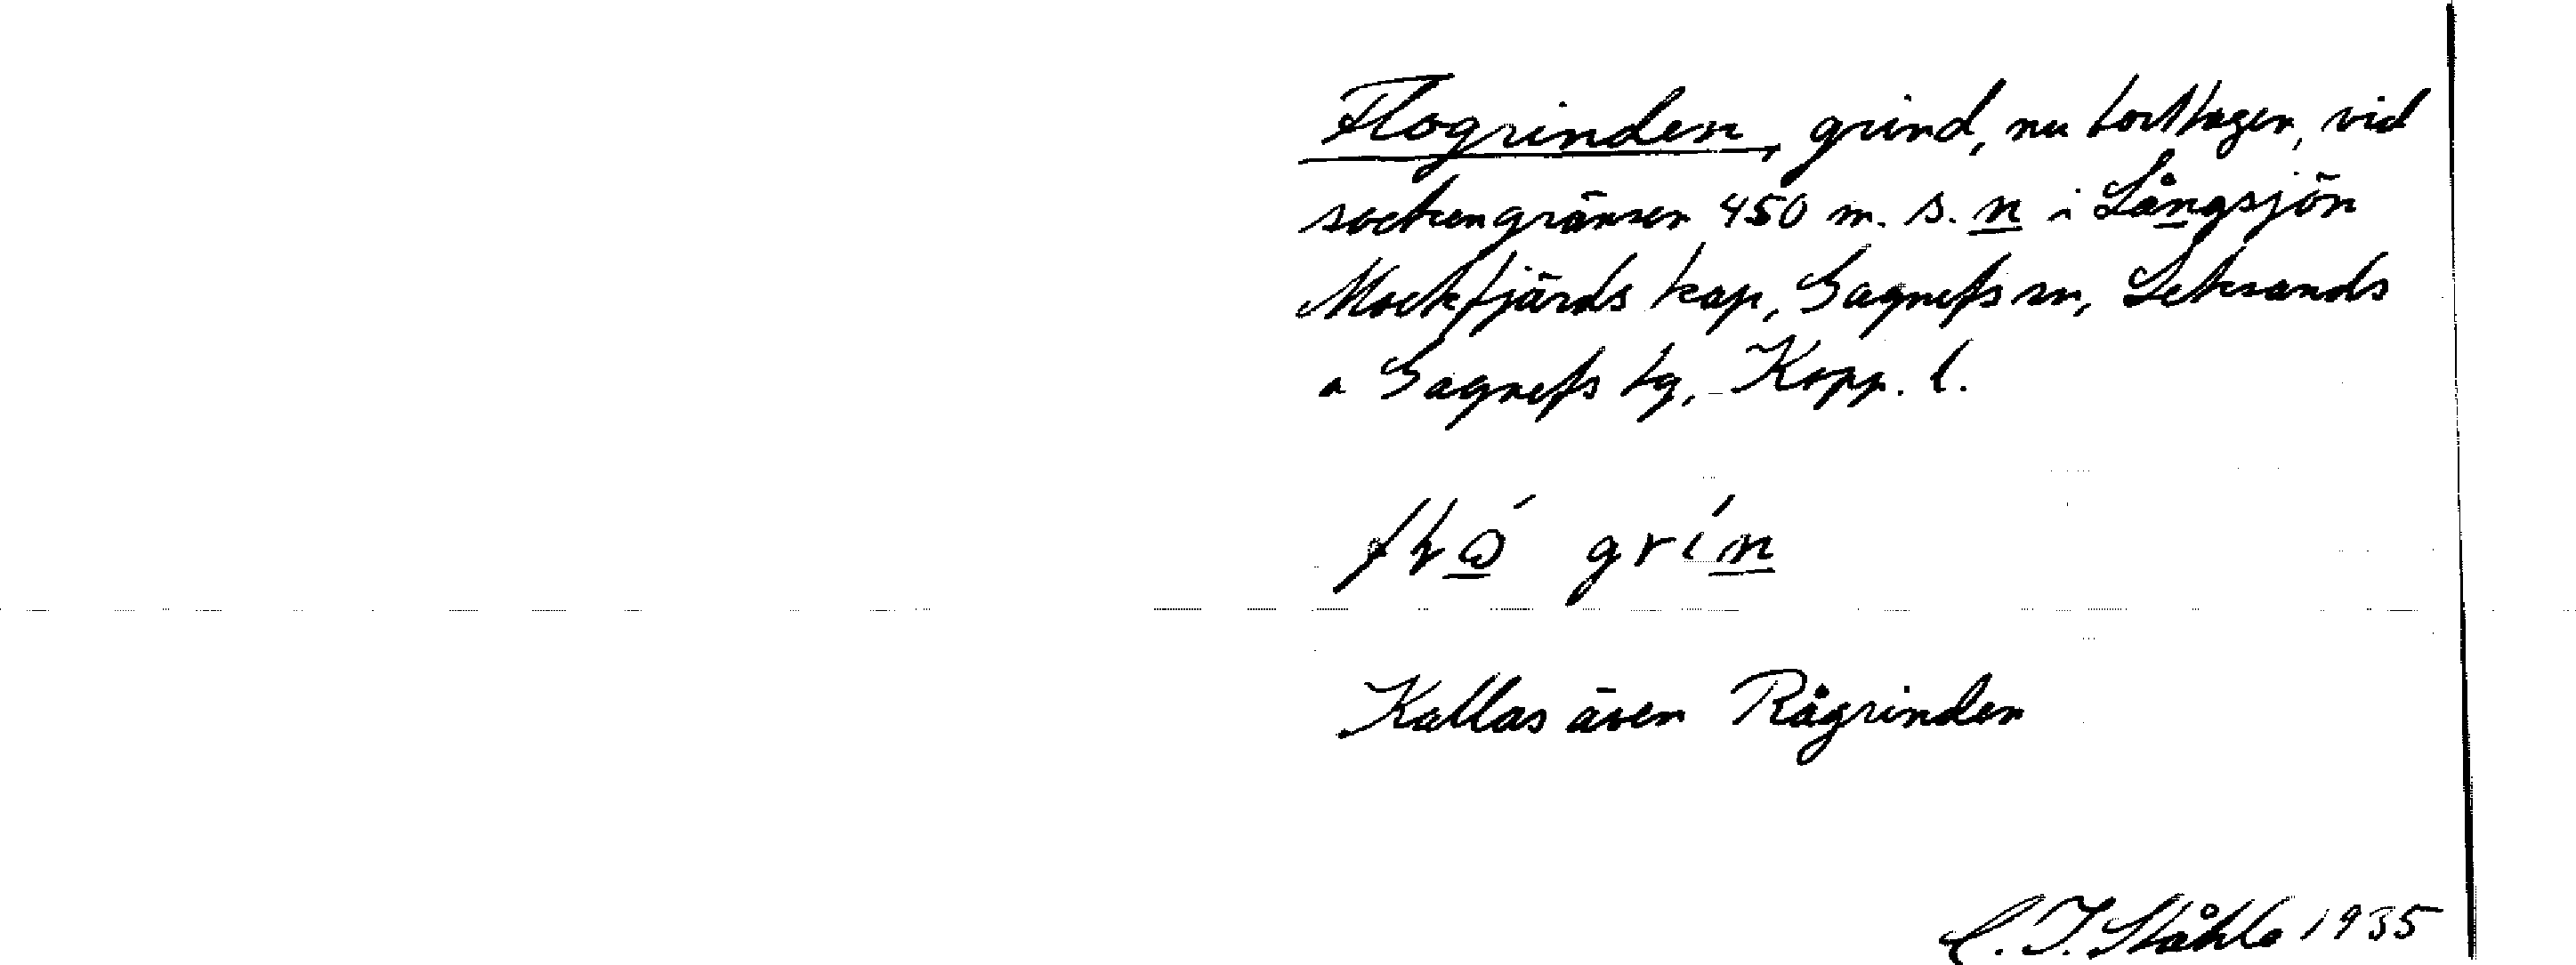 Flogrinden, grind, nu borttagen, vid
sockengränsen 450 m. s. n i Långsjön
Mockfjärds kap, Gagnefs sn, Leksands
o Gagnefs tg, Kopp. l.
grín
Kallas även Rågrinden
C. I. Ståhle 1935